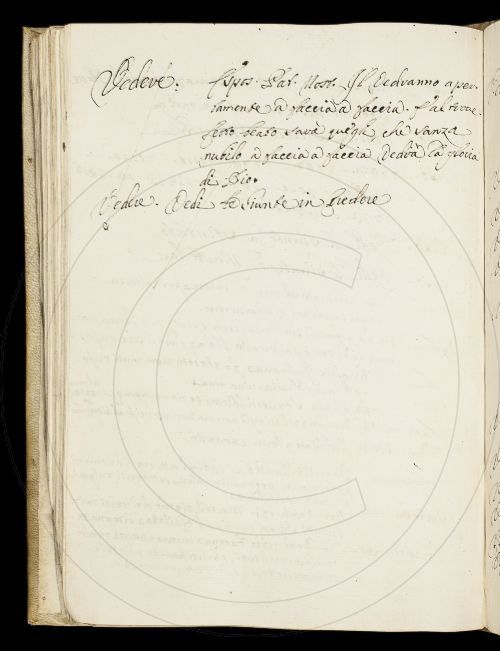 Vedere. Espos. Pat. Nost. Il vedranno aper-
tamente a faccia a faccia. E al trove
sarà quegli, che sanza
nubilo a faccia a faccia vedrà la gloria
di Dio.
Vedere. Vedi le Giunte in Credere